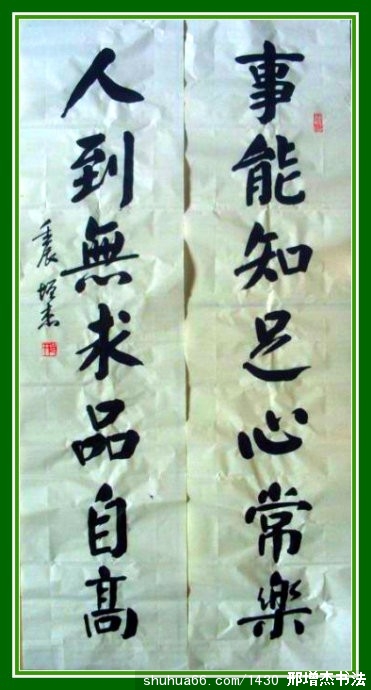 事能知足心常樂
人到無求品自高
壬辰 增杰
shuhua66.com/1430 邢增杰书法